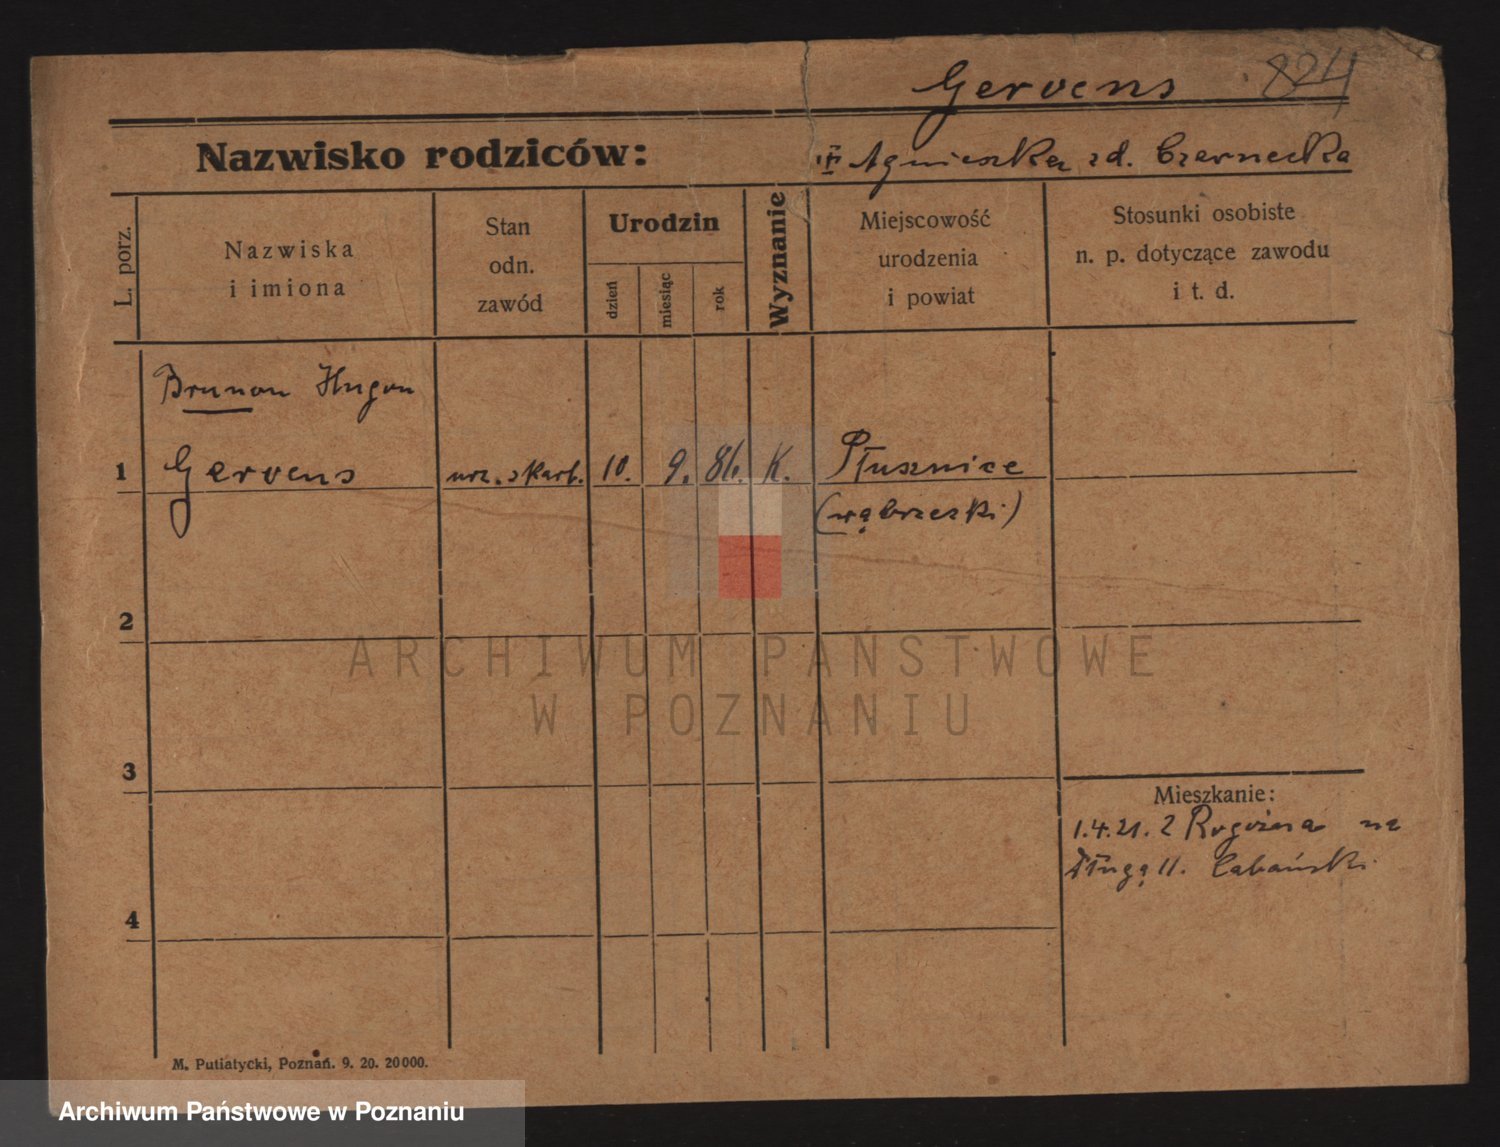 Gervens 824
Nazwisko rodziców:
Agnieszka zd. Czarnecka
L. porz.
Nazwiska
i imiona
Stan
odn.
zawód
Urodzin
dzień
miesiąc
rok
Wyznanie
Miejscowość
urodzenia
i powiat
Stosunki osobiste
n. p. dotyczące zawodu
i t. d.
Brunon Hugon
1 Gervens urz. skarb. 10. 9. 86. K. Płusznice
(wąbrzeski)
2
3
Mieszkanie:
1.4.21. z Rogoźna na
Długą 11. Łabański
4
M. Putiatycki, Poznań. 9. 20. 20000.
ARCHIWUM PAŃSTWOWE
W POZNANIU
Archiwum Państwowe w Poznaniu